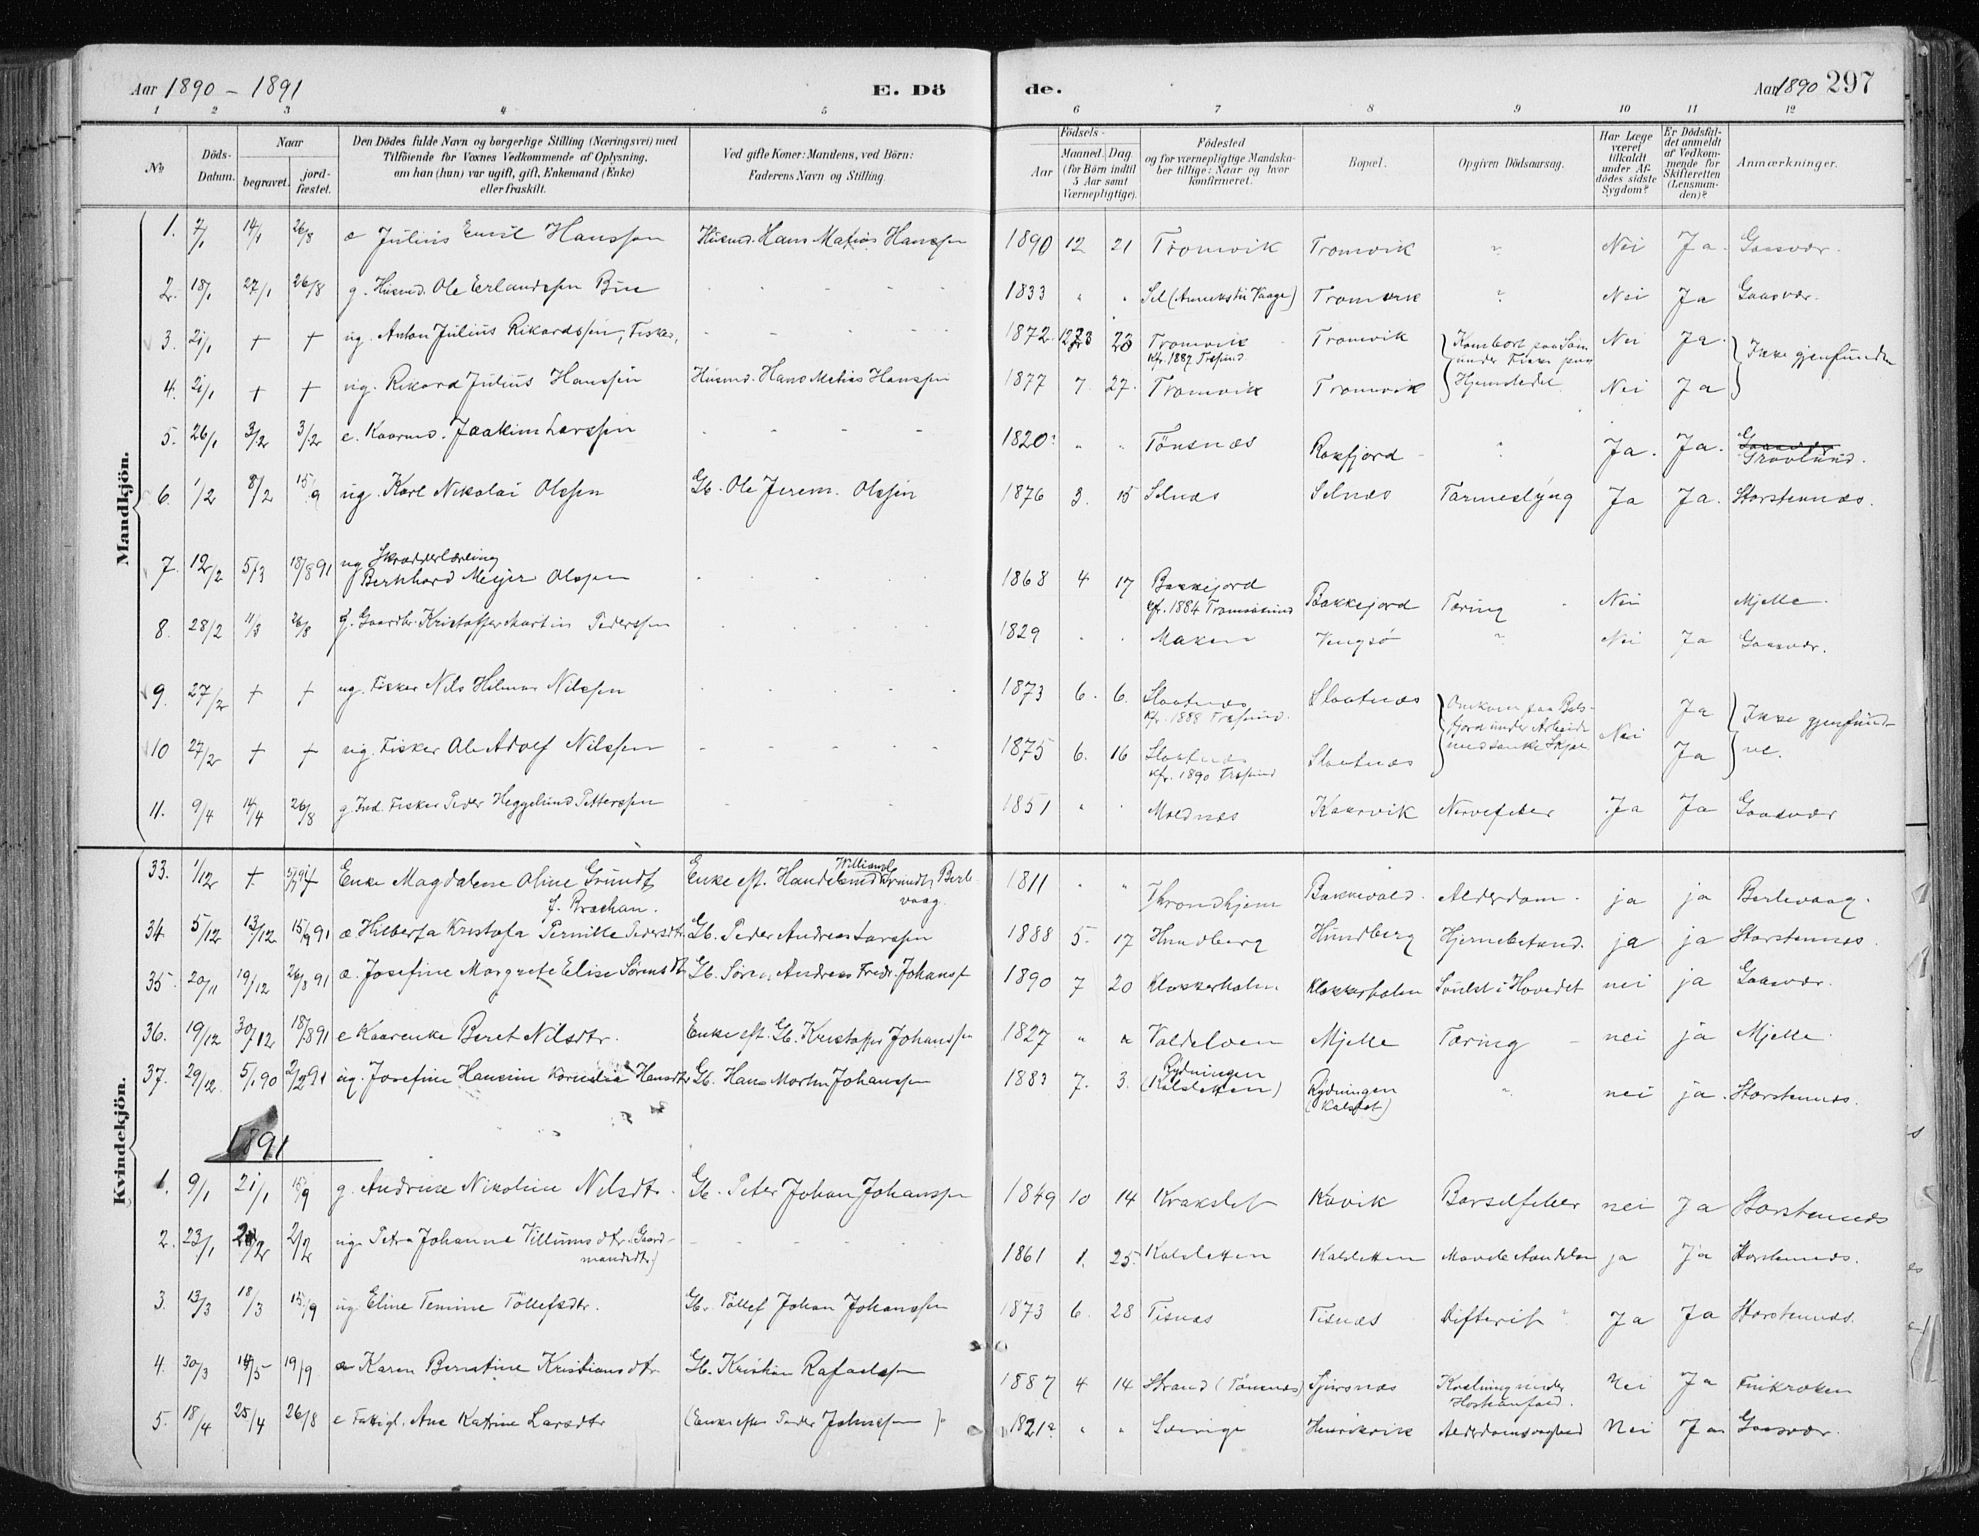 Aar 1890 - 1891 E. Dö de. Aar 1890 297
1 2 3 4 5 6 7 8 9 10 11 12
No. Döds-Datum. Naar begravet. jord-fæstet. Den Dödes fulde Navn og borgerlige Stilling (Næringsvei) med Tilföiende for Voxnes Vedkommende af Oplysning, om han (hun) var ugift, gift, Enkemand (Enke) eller fraskilt. Ved gifte Koner: Mandens, ved Börn: Faderens Navn og Stilling. Födsels- Aar Maaned. Dag. (for Börn indtil 5 Aar samt Værnepligtige). Födested og for værnepligtige Mandskaber tillige: Naar og hvor konfirmeret. Bopæl. Opgiven Dödsaarsag. Har Læge været tilkaldt under Afdödes sidste Sygdom? Er Dödsfaldet anmeldt af Vedkommende for Skifteretten (Lensmanden)? Anmærkninger.
Mandkjön.
1. 7/1 14/1 26/8 æ Julius Emil Hanssen Husmd. Hans Matias Hanssen 1890 12 21 Tromvik Tromvik " Nei Ja. Gaasvær.
2. 18/1 27/1 26/8 g. Husmd. Ole Erlandssen Bue - - - - 1833 " " Sel (Anneks til Vaage) Tromvik " Nei Ja Gaasvær.
3. 21/1 + + ug. Anton Julius Rikardssen, Fisker, - - - - 1872 23 Tromvik Kfr. 1887 Træsund. Tromvik Kom bort paa Søen under Fiske paa Hjemstedet. Nei Ja. Ikke gjenfundne
4. 21/1 + + ug. Rikard Julius Hanssen Husmd. Hans Matias Hanssen 1877 7. 27. Tromvik Tromvik Nei Ja
5. 26/1 3/2 3/2 e. Kaarmd. Joakim Larssen - - - - 1820 " " Tönsnæs Rakfjord " Ja. Ja. Gravlund.
6. 1/2 8/2 15/9 ug. Karl Nikolai Olssen Gb. Ole Jerem. Olssen 1876 3. 15 Selnæs Selnæs Tarmeslyng Ja Ja. Storstennæs.
7. 12/2 5/3 18/8 91 ug. Skrædderlærling Bernhard Meijer Olssen - - - - 1868 4 17 Bakkejord Kfr. 1884 Tromsösund Bakkejord Tæring Nei Mjelle.
8. 28/2 11/3 26/8 g. Gaardbr. Kristoffer Martin Pederssen - - - - 1829 " " Maken Vengsö " Nei Ja Gaasvær.
9. 27/2 + + ug. Fisker Nils Hilmar Nilssen - - - - 1873 6. 6. Slaatnæs Kfr. 1888 Træsund. Slaatnæs Omkom paa Balsfjord under Arbeide med sanke Skjæl Nei Ja Ikke gjenfundne.
10 27/2 + + ug. Fisker Ole Adolf Nilssen - - - - 1875 6. 16 Slaatnæs Kfr. 1890 Træsund Slaatnæs Ja
11. 9/4 14/4 26/8 g. Ind. Fisker Peder Heggelund Pettersen - - - - 1851 " " Moldnæs Kaarvik Nervefeber Ja Ja Gaasvær
Kvindekjön.
33. 1/12 + Enke Magdalene Oline Grundt f. Brachan. Enke eft. Handelsmd. William Grundt, Berlevaag. 1811 " " Throndhjem Bakkevold. Alderdom. ja ja Berlevaag.
34. 5/12 13/12 15/9 91 æ Hilberfa Kristofa Pernille Pedersdtr. Gb. Peder Andreas Larssen 1888 5. 17 Hundberg Hundberg Hjernebetænd. ja ja Storstennæs.
35. 20/11 19/12 26/8 91 æ. Josefine Margrete Elise Sørensdtr. Gb. Søren Andreas Fredr. Johanss. 1890 7 20 Klokkerholm. Klokkerholm Svulst i Hovedet nei ja Gaasvær.
36. 19/12 30/12 18/8 91 e Kaarenke Beret Nilsdtr. Enke eft. Gb. Kristoffer Johanssen 1827 " " Valdelven Mjelle Tæring nei ja Mjelle.
37. 29/12. 5/1 90 2/2 91 ug. Josefine Hansine Kornelia Hansdtr. Gb. Hans Morten Johanssen 1883 7. 3. Rydningen (Kalsletten) Rydningen (Kalslet) " nei ja. Storstennæs.
1891
1. 9/1 21/1 15/9 g. Andrine Nikoline Nilsdtr. Gb. Peter Johan Johanssen 1849 10 14 Krakslet Kavik Barselfeber nei Ja Storstennæs
2. 23/1 2/2 ug. Petra Johanne Villumsdtr. (Gaardmandsdtr.) - - - - 1861 1. 25. Kalsletten Kalsletten ja Ja Storstennæs.
3. 13/3 18/3 15/9 ug. Eline Temine Töllefsdtr. Gb. Tollef Johan Johanssen 1873 6. 28 Tisnæs Tisnæs Difterit " Ja Ja Storstennæs.
4. 30/3 14/5 19/9 æ Karen Berntine Kristiansdtr. Gb. Kristian Rafaelssen 1887 4 14 Strand (Tönsnæs) Sjursnæs Kvælning under Hosteanfald. Nei Ja Finkroken
5. 18/4 25/4 26/8 e Fattigl. Ane Katrine Larsdtr (Enke efter Peder Johnssen) 1821 " " Sverige Henrikvik Alderdomssvaghed Nei Ja Gaasvær.